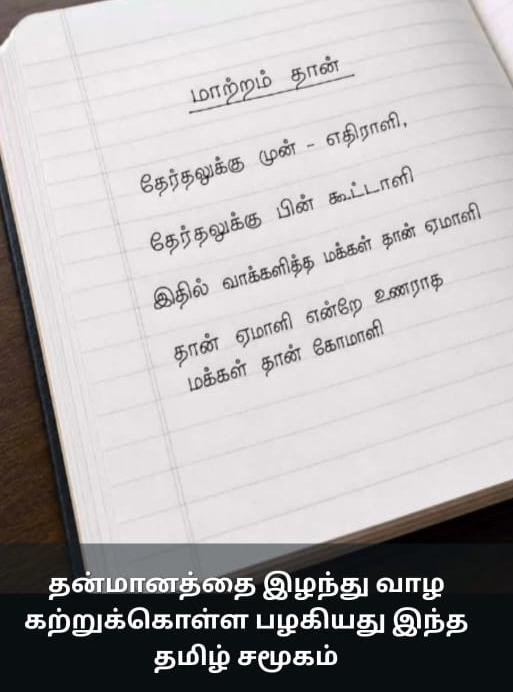 மாற்றம் தான்
தேர்தலுக்கு முன் - எதிராளி,
தேர்தலுக்கு பின் கூட்டாளி
இதில் வாக்களித்த மக்கள் தான் ஏமாளி
தான் ஏமாளி என்றே உணராத
மக்கள் தான் கோமாளி
தன்மானத்தை இழந்து வாழ
கற்றுக்கொள்ள பழகியது இந்த
தமிழ் சமூகம்